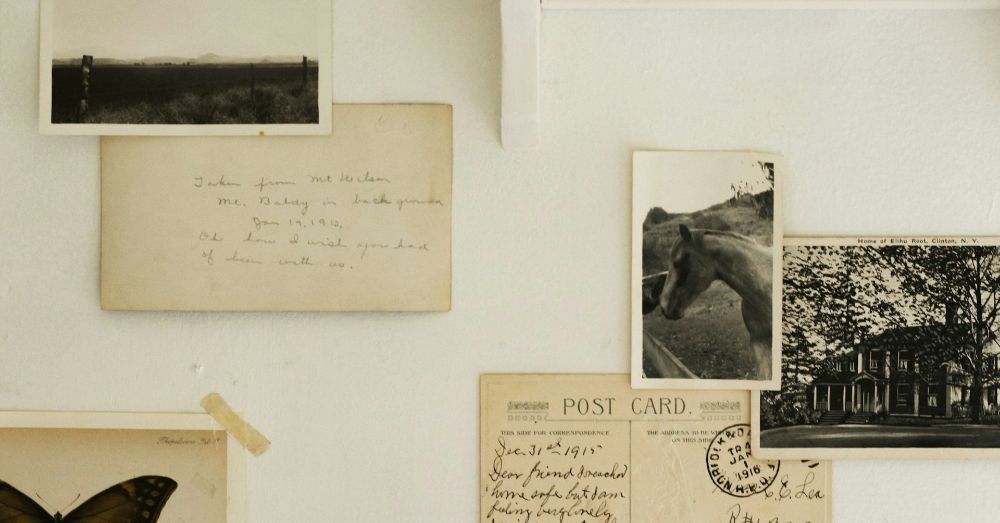 Taken from Mt Wilson
Mt. Baldy in back ground
Jan 19, 191
Oh how I wish you had
of been with us.
Home of Elihu Root, Clinton, N. Y.
POST CARD.
THIS SIDE FOR CORRESPONDENCE.
THE ADDRESS TO BE
ON THIS SIDE
Dec. 31st 1915
Dear friend I reached
home safe but am
feeling very lonely
NORFOLK
TR
JAN
1
1916
R.P.O.
C. E. Lea